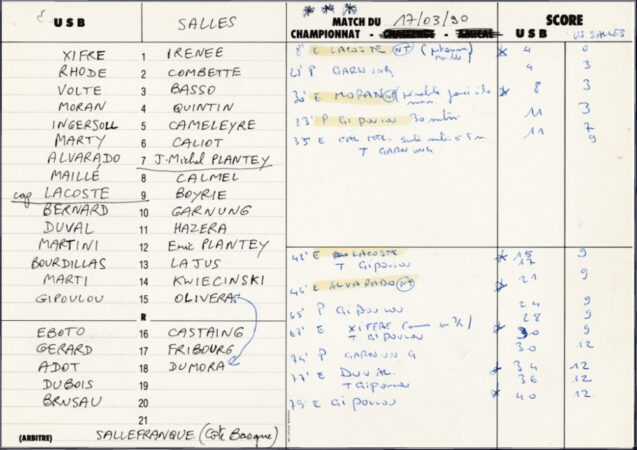 USB SALLES MATCH DU 17/03/90 SCORE
CHAMPIONNAT - CHALLENGE - AMICAL USB US SALLES
XIFRE 1 IRENEE
RHODE 2 COMBETTE
VOLTE 3 BASSO
MORAN 4 QUINTIN
INGERSOLL 5 CAMELEYRE
MARTY 6 CALIOT
ALVARADO 7 J-Michel PLANTEY
MAILLÉ 8 CALMEL
cap LACOSTE 9 BOYRIE
BERNARD 10 GARNUNG
DUVAL 11 HAZERA
MARTINI 12 Eric PLANTEY
BOURDILLAS 13 LAJUS
MARTI 14 KWIECINSKI
GIPOULOU 15 OLIVERA
R
EBOTO 16 CASTAING
GERARD 17 FRIBOURG
ADOT 18 DUMORA
DUBOIS 19
BRUSAU 20
21
(ARBITRE) SALLEFRANQUE (Côte Basque)
8' E LACOSTE NT * 4 0
21' P GARNUNG 4 3
30' E MORAN NT * 8 3
33' P GIPOULOU 30 mètres 11 3
35' E CALMEL 11 7
T GARNUNG 9
42' E LACOSTE * 15 9
T GIPOULOU 17
46' E ALVARADO NT * 21 9
65' P GIPOULOU 24 9
67' E XIFRE * 28 9
T GIPOULOU 30 9
74' P GARNUNG 30 12
77' E DUVAL * 34 12
T GIPOULOU 36 12
79' E GIPOULOU * 40 12